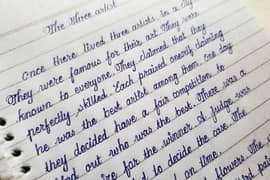 The three artist
Once there lived three artists in a city
They were famous for their art. They were
known to everyone. They claimed that they
perfectly skilled. Each praised oneself claiming
he was the best artist among them. one day
they decided have a fair competition to
out who was the best. There was a
for the winner. A judge was
to decide the case. The
on time.
flowers. The